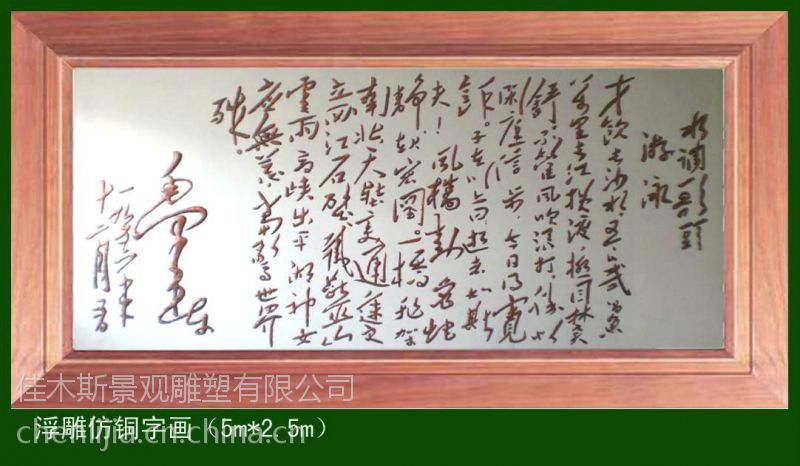 水调歌头
游泳
才饮长沙水 又食武昌鱼
万里长江横渡 极目楚天
舒 不管风吹浪打 胜似
闲庭信步 今日得宽
余。子在川上曰 逝者如斯
夫！风樯动 龟蛇
静 起宏图。一桥飞架
南北 天堑变通途 更
立西江石壁 截断巫山
雲雨 高峡出平湖 神女
应無恙 当惊世界
殊.
毛泽东
一九五六年
十二月五
佳木斯景观雕塑有限公司
浮雕仿铜字画（5m*2.5m）
chenlijia.cn.china.cn